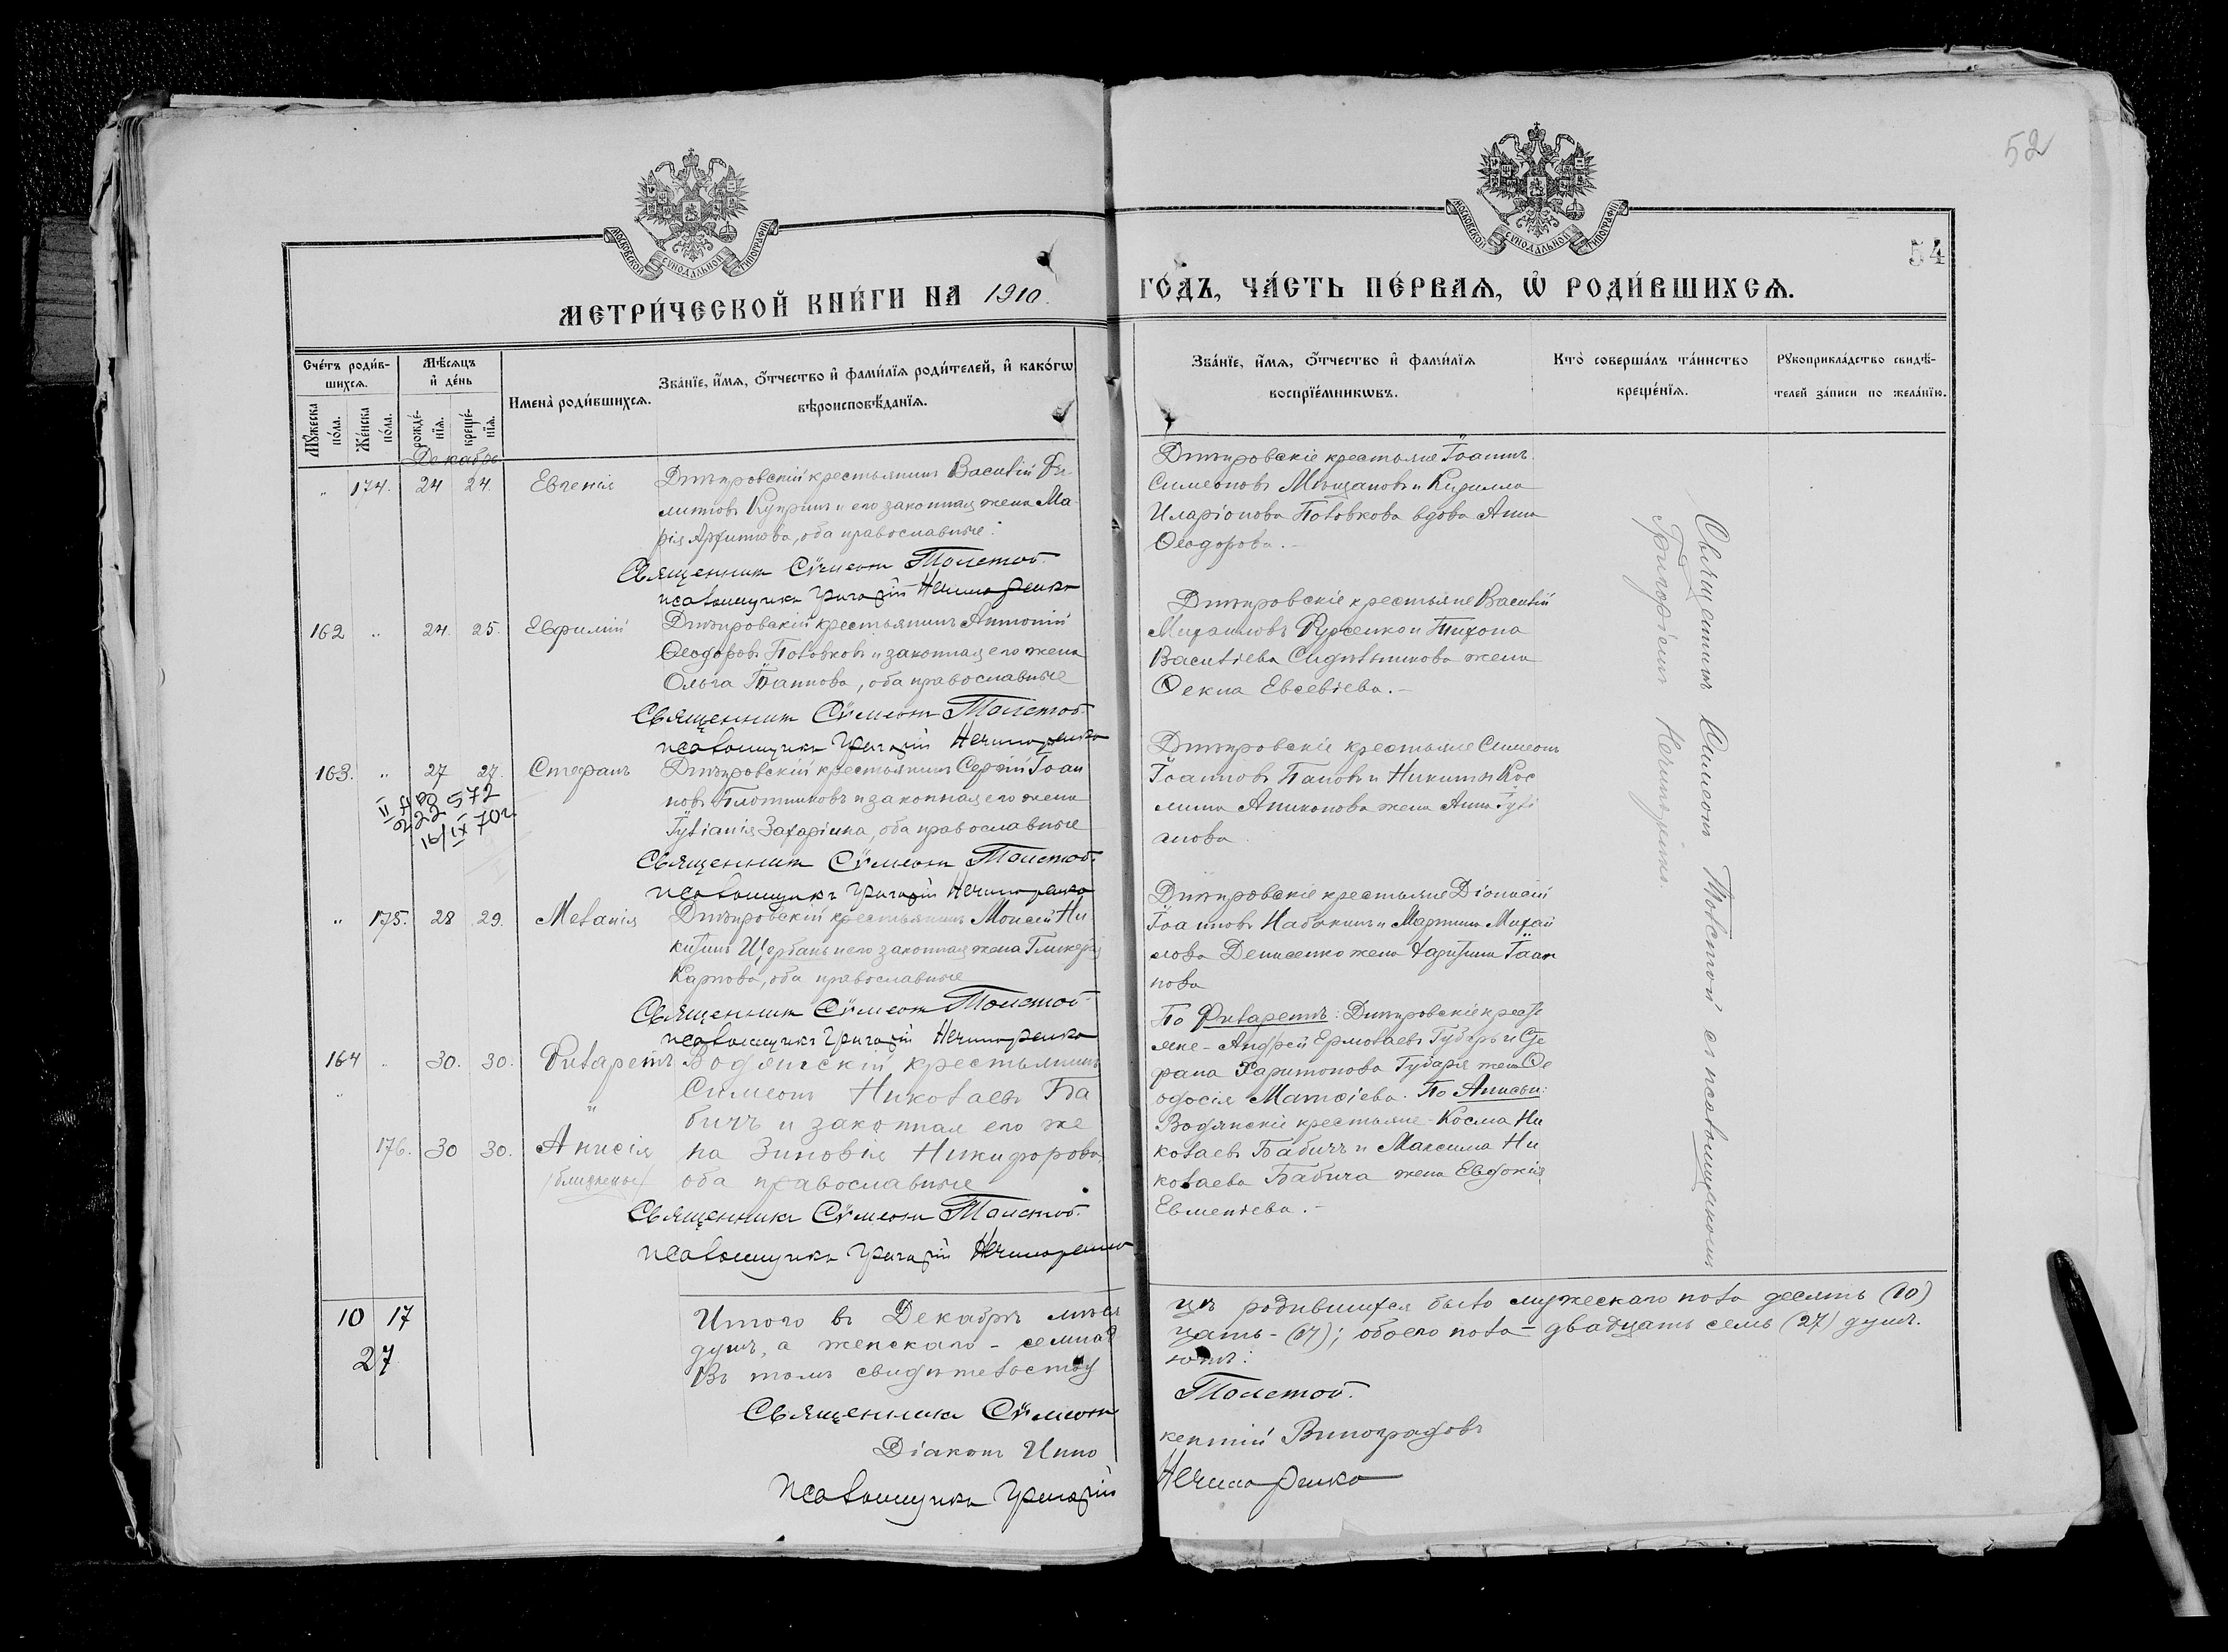 52
МОСКОВСКОЙ СѴНОДАЛЬНОЙ ТИПОГРАФІИ
МОСКОВСКОЙ СѴНОДАЛЬНОЙ ТИПОГРАФІИ
54
МЕТРИ́ЧЕСКОЙ КНИ́ГИ НА 1910. ГО́ДЪ, ЧА́СТЬ ПЕ́РВАЯ, Ѡ҆ РОДИ́ВШИХСЯ.
Сче́тъ роди́в-
шихся.
Мꙋ́жеска по́ла.
Же́нска по́ла.
Мѣ́сяцъ
и҆ де́нь
рожде́-
нїя.
креще́-
нїя.
Имена̀ роди́вшихся.
Зва́нїе, и҆́мя, ѻ҆́тчество и҆ фами́лїя роди́телей, и҆ како́гѡ
вѣроисповѣ́данїя.
Зва́нїе, и҆́мя, ѻ҆́тчество и҆ фами́лїя
воспрїе́мникѡвъ.
Кто̀ соверша́лъ та́инство
креще́нїя.
Рꙋкоприкла́дство свидѣ́-
телей за́писи по жела́нїю.
Декабрь
„ 174. 24 24. Евгенія
Дмитровскій крестьянинъ Василій
Купринъ и его законная жена Ма
рія Архипова, оба православные.
Священникъ Сѵмеонъ Толстой.
псаломщикъ Григорій Нечипоренко
Дмитровскіе крестьяне Іоаннъ
Симеоновъ Мѣщановъ и Кирилла
Иларіонова Половкова вдова Анна
Ѳеодорова.
162 „ 24. 25. Евфимій
Дмитровскій крестьянинъ Антоній
Ѳеодоровъ Половковъ и законная его жена
Ольга Іоаннова, оба православные
Священникъ Сѵмеонъ Толстой.
псаломщикъ Григорій Нечипоренко
Дмитровскіе крестьяне Василій
Михаиловъ Руденко и Тихона
Василіева Сидѣльникова жена
Ѳекла Евсевіева.
163. „ 27 27. Стефанъ
II АР 572
222
16/IX 70г.
Дмитровскій крестьянинъ Сергій Іоан
новъ Плотниковъ и законная его жена
Іуліанія Захаріина, оба православные
Священникъ Сѵмеонъ Толстой.
псаломщикъ Григорій Нечипоренко
Дмитровскіе крестьяне Симеонъ
Іоанновъ Пановъ и Никиты Кос
мина жена Анна Іулі
анова.
„ 175. 28 29. Меланія
Дмитровскій крестьянинъ Моисей Ни
китинъ Щербань и его законная жена Гликерія
Карпова, оба православные
Священникъ Сѵмеонъ Толстой
псаломщикъ Григорій Нечипоренко
Дмитровскіе крестьяне Діонисій
Іоанновъ Набокинъ и Мартина Михаи
лова Денисенко жена Харитина Іоан
нова
164 „ 30. 30. Филаретъ
„ 176. 30 30. Анисія
/близнецы/
Водянскій крестьянинъ
Симеонъ Николаевъ Ба
бичъ и законная его же
на Зиновія Никифорова
оба православные
Священникъ Сѵмеонъ Толстой.
псаломщикъ Григорій Нечипоренко
По Филаретѣ: Дмитровскіе кресть
яне - Андрей Ермолаевъ Губарь и Сте
фана Харитонова Губаря жена Ѳе
одосія Матѳіева. По Анисіи:
Водянскіе крестьяне - Косма Ни
колаевъ Бабичъ и Максима Ни
колаева Бабича жена Евдокія
Евменіева.
Священникъ Симеонъ Толстой съ псаломщикомъ
Григоріемъ Нечипоренко
10 17
27
Итого въ Декабрѣ мѣся цѣ родившихся было мужескаго пола десять (10)
душъ, а женскаго - семнад цать - (17); обоего пола - двадцать семь (27) душъ.
Въ томъ свидѣтельству ютъ:
Священникъ Сѵмеонъ Толстой.
Діаконъ Инно кентій Виноградовъ
Псаломщикъ Григорій Нечипоренко